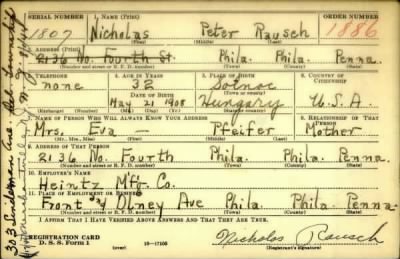 SERIAL NUMBER 1. NAME (Print) ORDER NUMBER
1807 Nicholas Peter Rausch 1886
(First) (Middle) (Last)
2. ADDRESS (Print)
2136 No. Fourth St. Phila. Phila. Penna.
(Number and street or R. F. D. number) (Town) (County) (State)
3. TELEPHONE 4. AGE IN YEARS 5. PLACE OF BIRTH 6. COUNTRY OF CITIZENSHIP
none 32 Solnoc
DATE OF BIRTH (Town or county)
May 21 1908 Hungary U.S.A.
(Exchange) (Number) (Mo.) (Day) (Yr.) (State or country)
7. NAME OF PERSON WHO WILL ALWAYS KNOW YOUR ADDRESS 8. RELATIONSHIP OF THAT PERSON
Mrs. Eva — Pfeifer Mother
(Mr., Mrs., Miss) (First) (Middle) (Last)
9. ADDRESS OF THAT PERSON
2136 No. Fourth Phila. Phila. Penna.
(Number and street or R. F. D. number) (Town) (County) (State)
10. EMPLOYER'S NAME
Heintz Mfr. Co.
11. PLACE OF EMPLOYMENT OR BUSINESS
Front and Olney Ave Phila. Phila. Penna.
(Number and street or R. F. D. number) (Town) (County) (State)
I AFFIRM THAT I HAVE VERIFIED ABOVE ANSWERS AND THAT THEY ARE TRUE.
REGISTRATION CARD
D. S. S. Form 1 (over) 16—17105 Nicholas Rausch
(Registrant's signature)
303